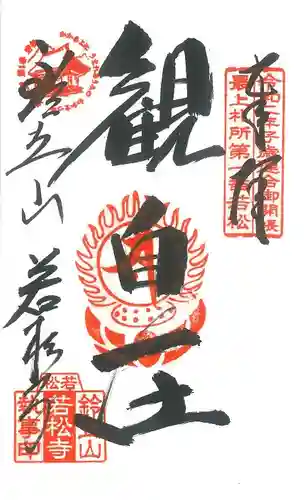 奉拝
令和二年子歳連合御開扉
最上札所第一番若松
観自在
鈴立山
若松寺
若松
鈴立山
若松寺
執事印